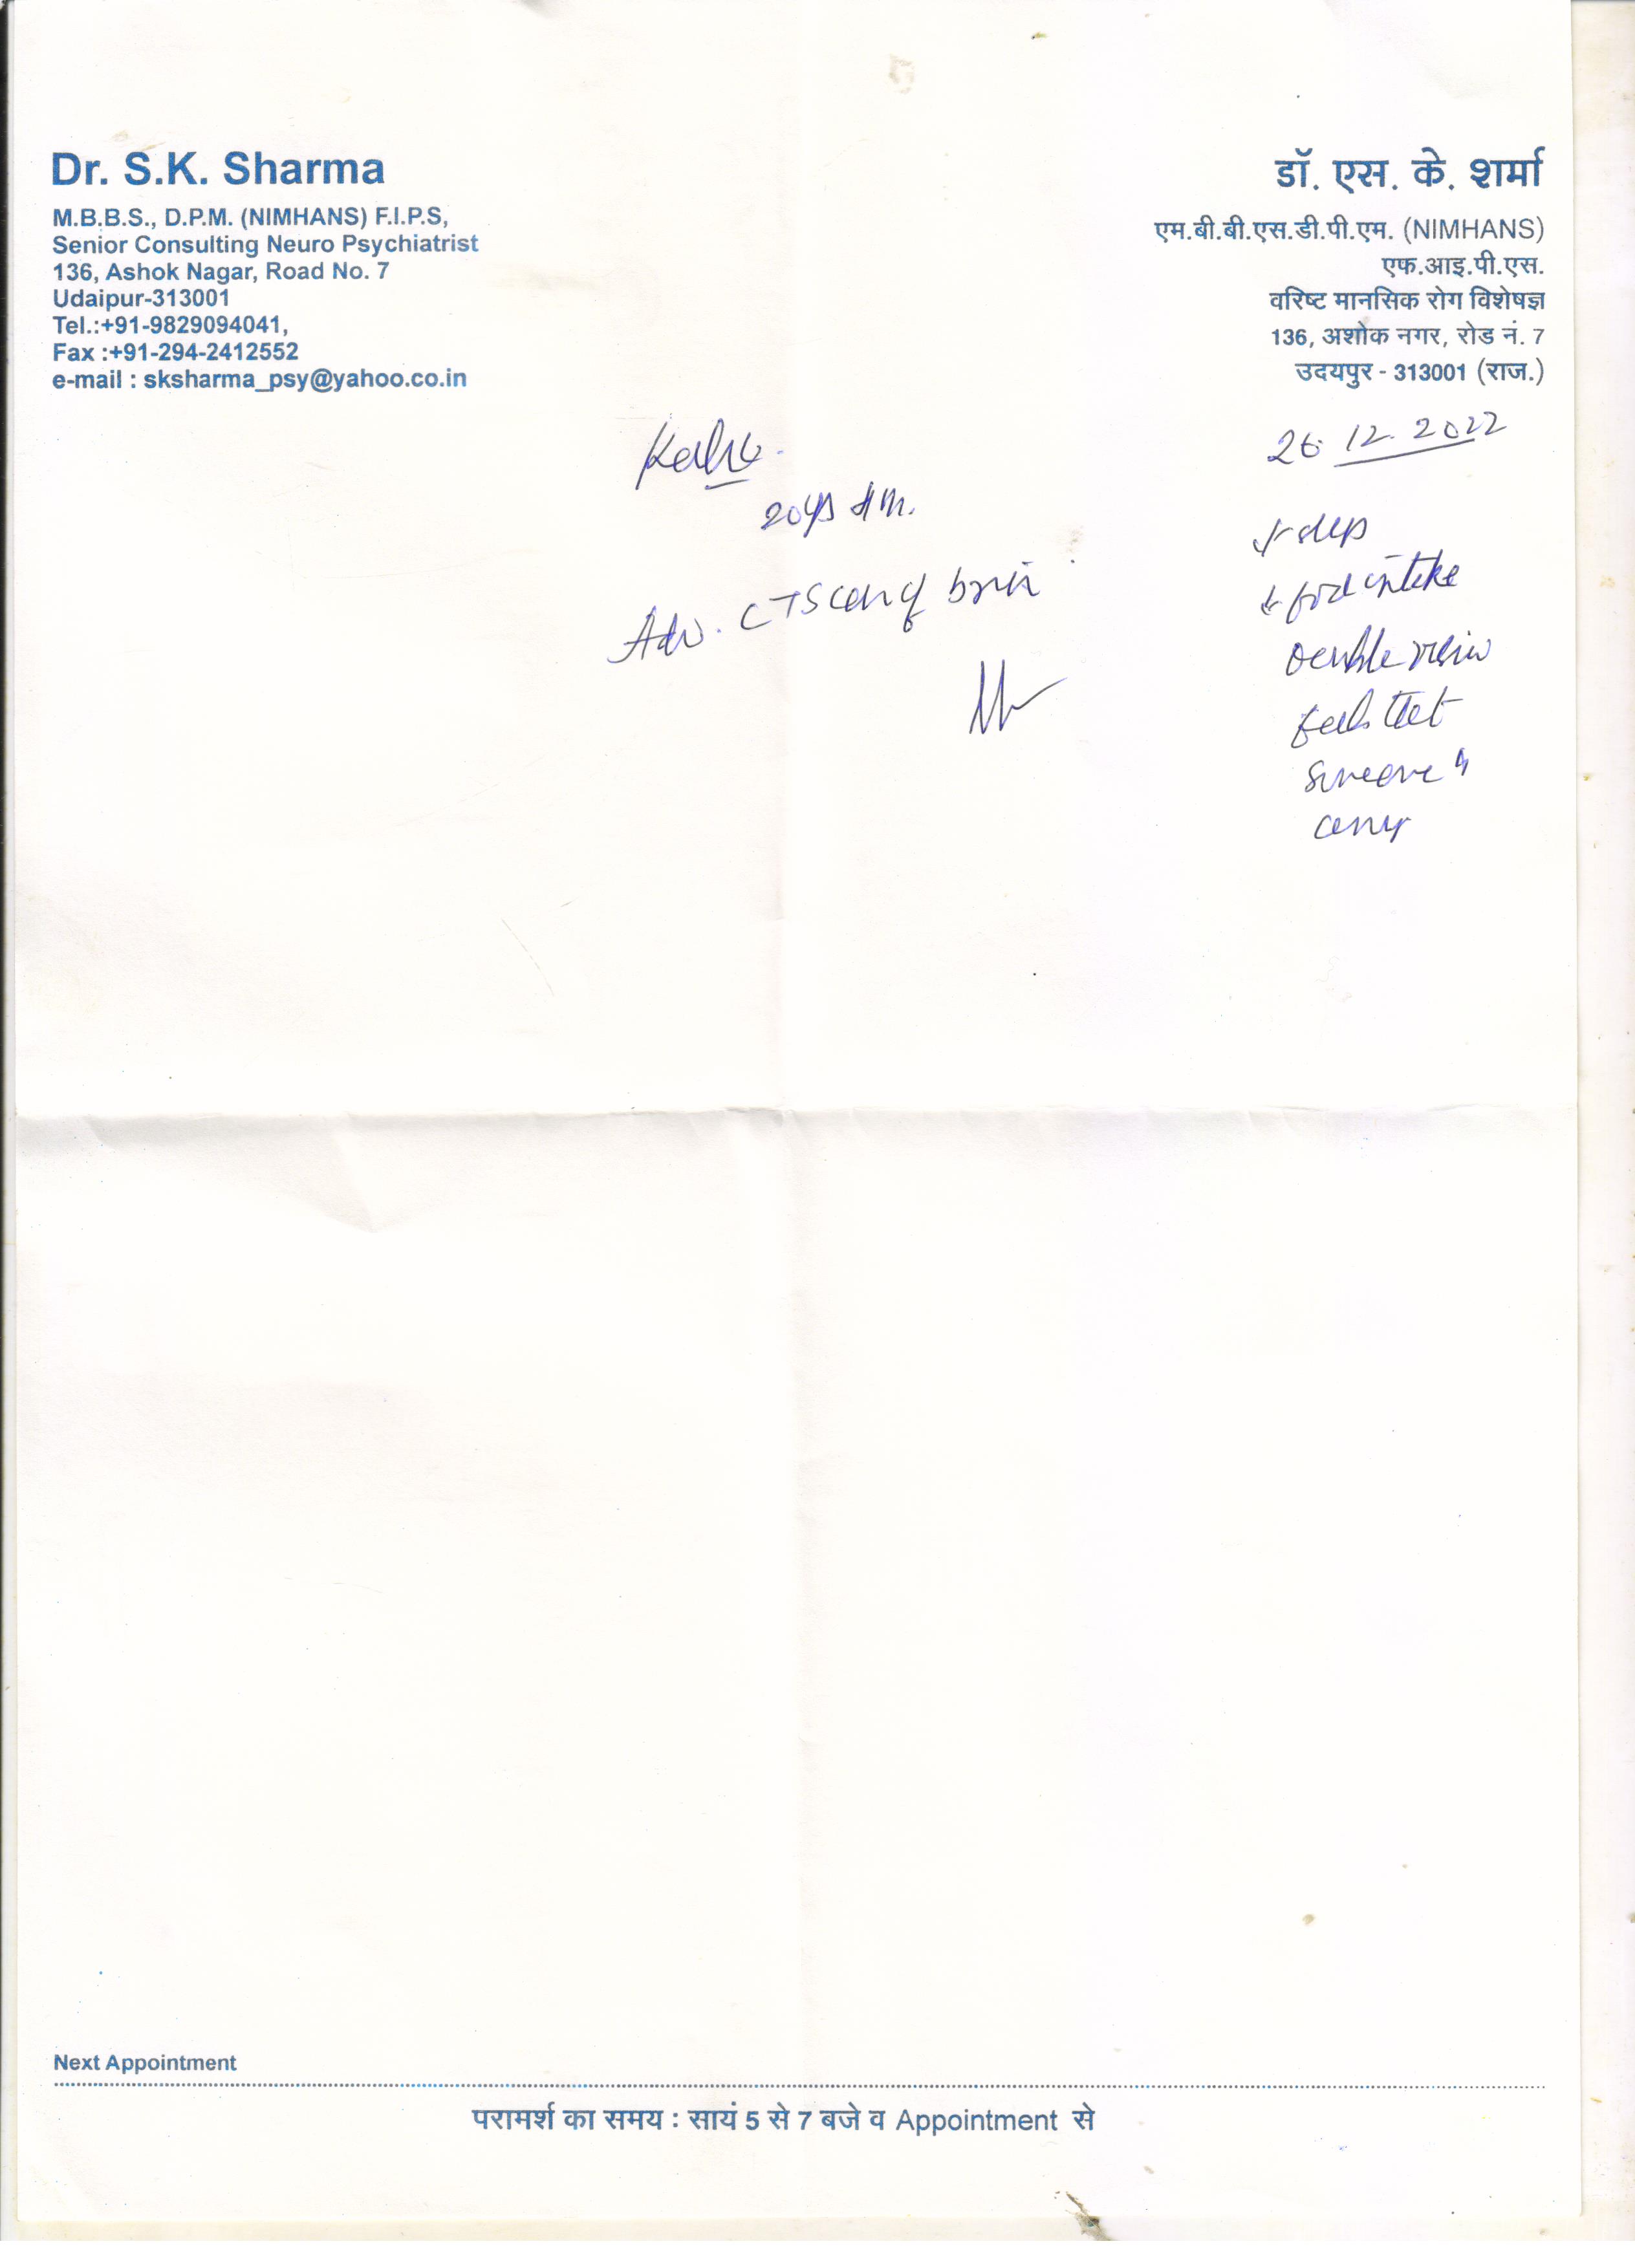 Dr. S.K. Sharma
M.B.B.S., D.P.M. (NIMHANS) F.I.P.S,
Senior Consulting Neuro Psychiatrist
136, Ashok Nagar, Road No. 7
Udaipur-313001
Tel.:+91-9829094041,
Fax :+91-294-2412552
e-mail : sksharma_psy@yahoo.co.in
डॉ. एस. के. शर्मा
एम.बी.बी.एस.डी.पी.एम. (NIMHANS)
एफ.आइ.पी.एस.
वरिष्ट मानसिक रोग विशेषज्ञ
136, अशोक नगर, रोड नं. 7
उदयपुर - 313001 (राज.)
26.12.2022
20 yrs
Adv. CT Scan of brain
↓ sleep
↓ food intake
Double vision
feels that
someone is
Next Appointment
परामर्श का समय : सायं 5 से 7 बजे व Appointment से